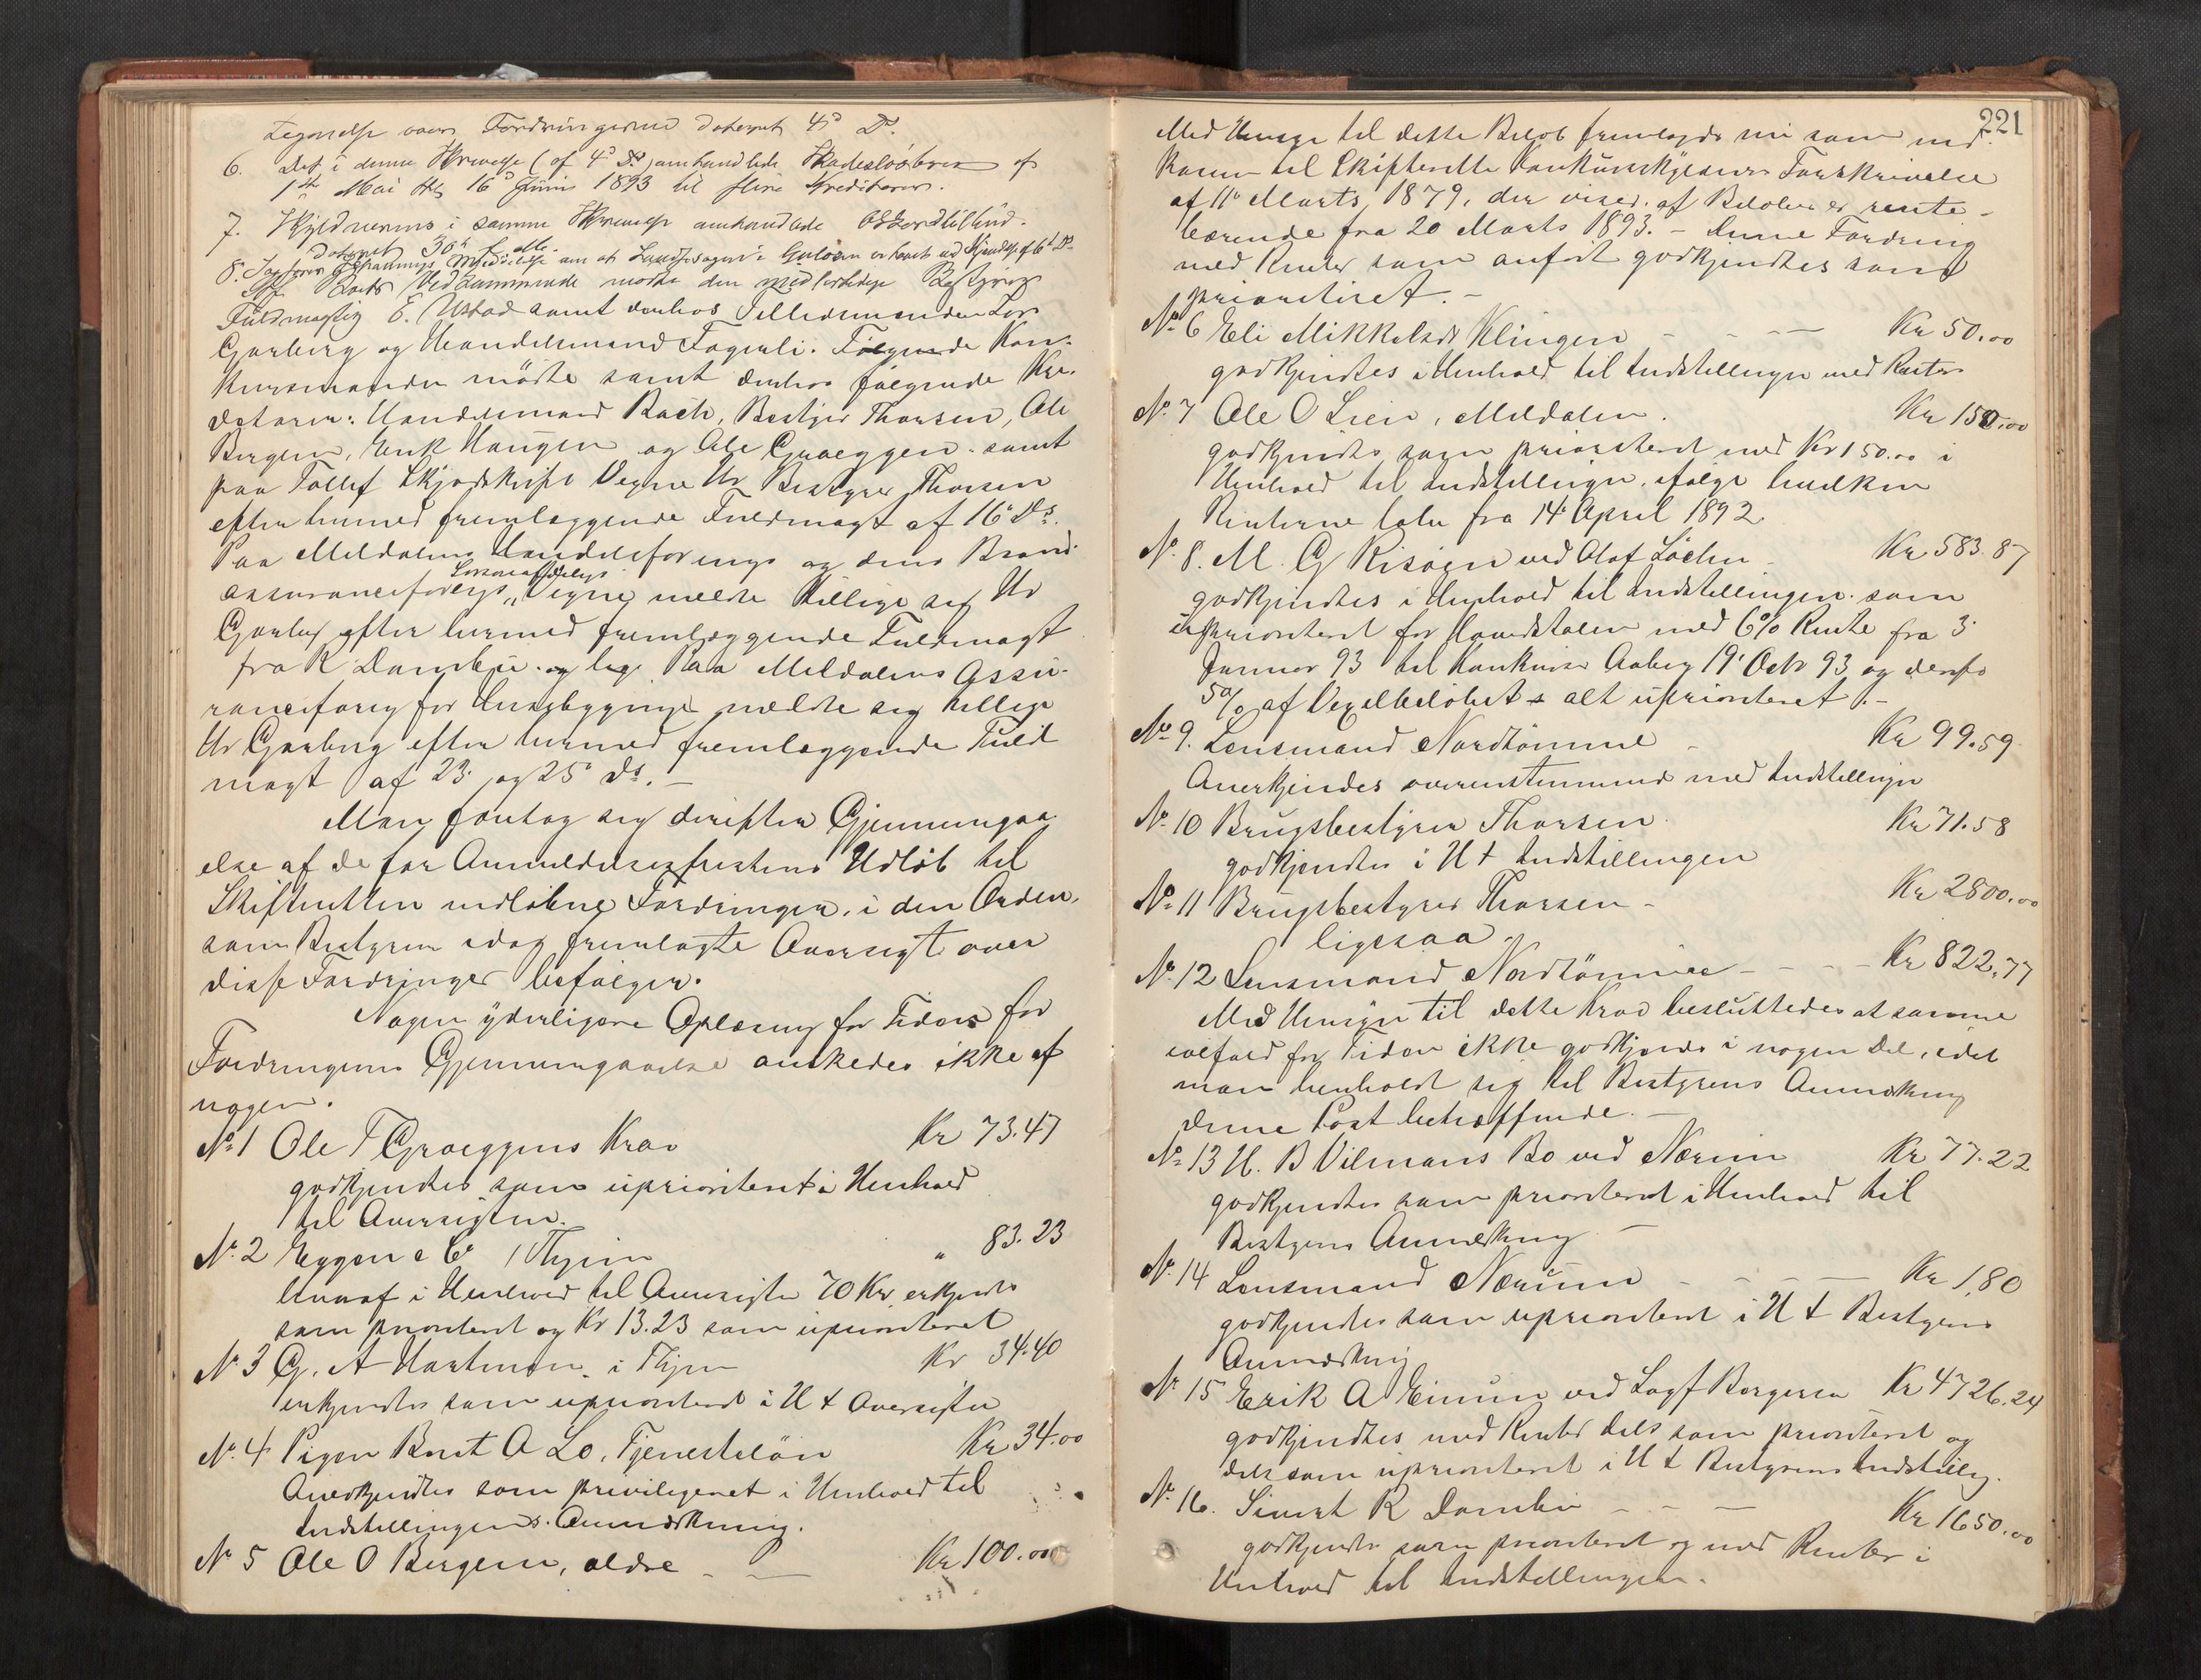 tegnelse over Fordringerne dateret 4d Ds.
6. Det i denne Skrivelse (af 4d Ds) omhandlede Skadesløsbrev af
1ste Mai tgl 16d Juni 1893 til flere Kreditorer.
7. Skyldnerens i samme Skrivelse omhandlede Akkordtilbud
dateret 30te f. Mts.
8. Sagfører meddelelse om at i Guldosen er hævet ved Kjendelse af 6te Ds
Vedkommende mødte den midlertidige Bestyrer
Fuldmægtig E. Ustad samt denhos Tillidsmændene Lars
Garberg og Handelsmand Fagerli. Følgende Kon-
kursmænder mødte samt denhos følgende Kre-
ditorer: Handelsmand Bach, Bestyrer Thorsen, Ole
Bergem, Erik Haugen og Ole Græggen samt
paa Tollef Skjødskifts Vegne Hr Bestyrer Thorsen
efter hermed fremlæggende Fuldmagt af 16d Ds.
Paa Meldalens Handelsforenings og dens Brand-
Løsøreafdelings
assuranceforegs „ Vegne meldte tillige sig Hr
Garberg efter hermed fremlæggende Fuldmagt
fra R Dombu. og lige Paa Meldalens Assu-
ranceforeg for Husebygninge meldte sig tillige
Hr Garberg efter hermed fremlæggende Fuld
magt af 23 og 25d Ds. –
Man foretog sig derefter Gjennemgaa
else af de før Anmeldelsesfristens Udløb til
Skifteretten indløbne Fordringer, i den Orden,
som Bestyreren idag fremlagte Oversigt over
disse Fordringer befølger.
Nogen yderligere Oplæsning for Tiden for
Fordringernes Gjennemgaaelse ønskedes ikke af
nogen.
No 1 Ole T Græggens Krav Kr 73.47
godkjendtes som uprioriteret i Henhold
til Oversigten.
No 2 Eggen & Co, Thjem " 83.23
hvoraf i Henhold til Oversigten 70 Kr erkjendtes
som prioriteret og Kr 13.23 som uprioriteret
No 3 G. A Hartman i Thjem Kr 34.40
erkjendtes som uprioriteret i H t Oversigten
No 4 Pigen Berit A Lo, Tjenesteløn Kr 34.00
Anerkjendtes som privilegeret i Henhold til
Indstillingens Anmærkning.
No 5 Ole O Bergem, ældre – — Kr 100.00
221
Med Hensyn til dette Beløb fremlagdes nu som ind-
kommen til Skifteretten Konkursskyldnerens Forskrivelse
af 11te Marts 1879, der viser, at Beløbet er rente-
bærende fra 20 Marts 1893. – Denne Fordring
med Renter som anført godkjendtes som
prioriteret. –
No 6 Eli Mikkelsdt Klingen – – – — Kr 50.00
godkjendtes i Henhold til Indstillingen med Renter
No 7 Ole O Lien, Meldalen. Kr 150.00
godkjendtes som prioriteret med Kr 150.00 i
Henhold til Indstillingen, ifølge hvilken
Renterne løber fra 14d April 1892.
No 8. M. G Risøen ved Olaf Løchen – Kr 583.87
godkjendtes i Henhold til Indstillingen som
uprioriteret for Hovedstolen med 6% Rente fra 3
Januar 93 til Konkursens Aabng 19d Octr 93 og derefter
5% af Vexelbeløbet alt uprioriteret. –
No 9. Lensmand Nordtømme – Kr 99.59
Anerkjendes overensstemmende med Indstillingen
No 10 Brugsbestyrer Thorsen. Kr 71.58
godkjendtes i H t Indstillingen
No 11 Brugsbestyrer Thorsen – Kr 2800.00
ligesaa.
No 12 Lensmand Nordtømme – – – Kr 822.77
Med Hensyn til dette Krav besluttedes at samme
ialfald for Tiden ikke godkjendes i nogen Del, idet
man henholdt sig til Bestyrerens Anmærkning
denne Post betræffende. –
No 13 H. B Vilmans Bo ved Nærum Kr 77.22
godkjendtes som prioriteret i Henhold til
Bestyrens Anmærkning –
No 14 Lensmand Nærum – – – — Kr 1.80
godkjendtes som uprioriteret i H t Bestyrens
Anmærkning
No 15 Erik A Einum ved Sagf Borgersen Kr 4726.24
godkjendtes med Renter dels som prioriteret og
dels som uprioriteret i H t Bestyrens Indstilling.
No 16. Sivert R Dombu – – — Kr 1650.00
godkjendtes som prioriteret og med Renter i
Henhold til Indstillingen.